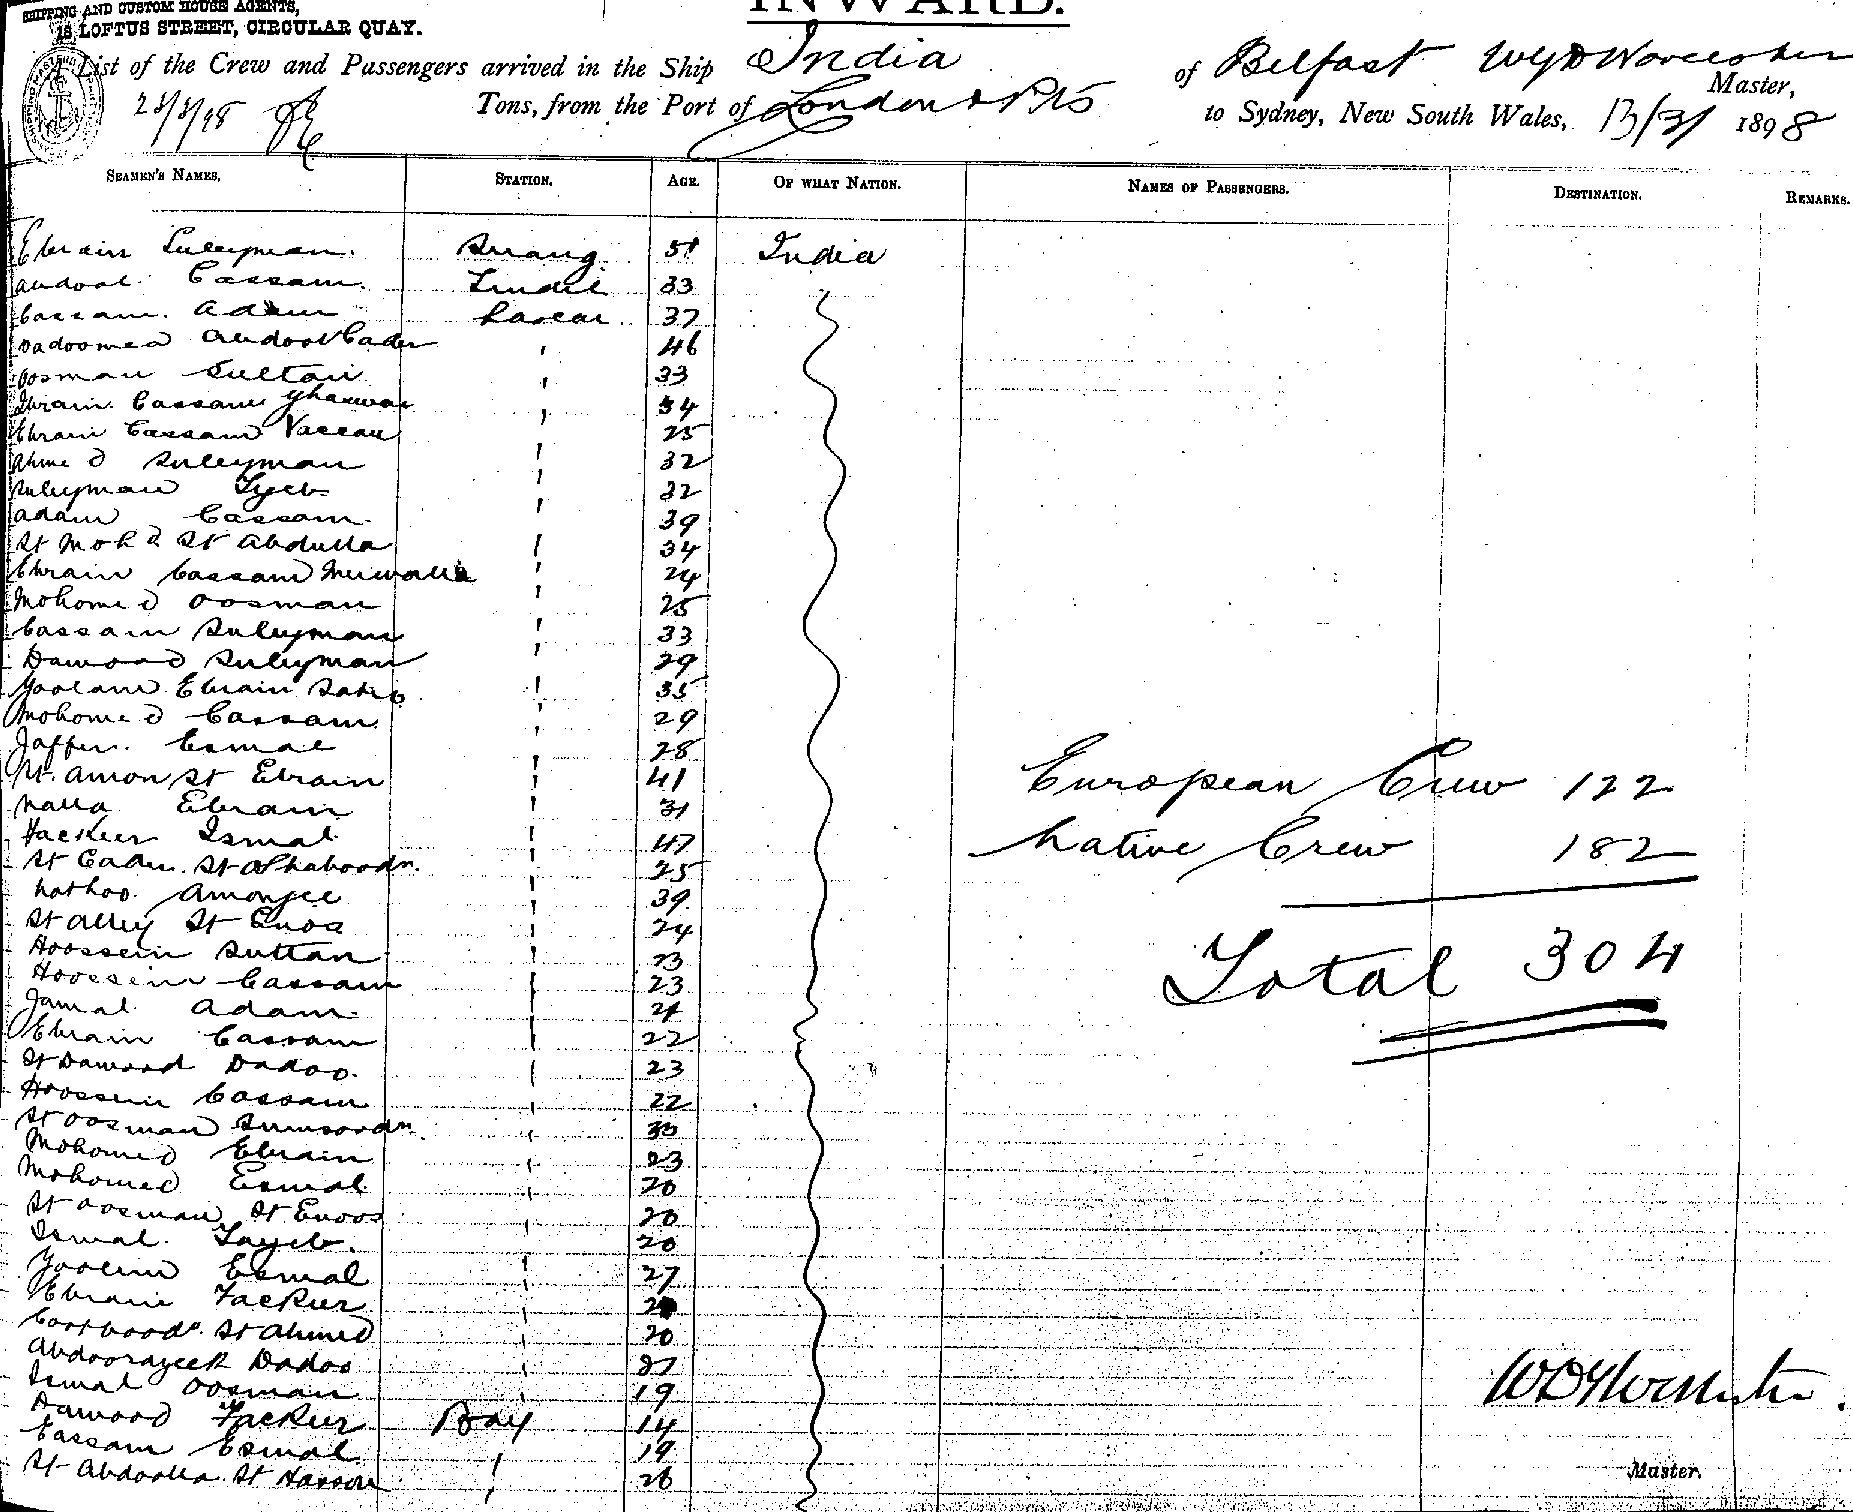 SHIPPING AND CUSTOM HOUSE AGENTS,
18 LOFTUS STREET, CIRCULAR QUAY.
INWARD.
List of the Crew and Passengers arrived in the Ship India of Belfast WGD Worcester Master,
23/3/98 Tons, from the Port of London & Pts to Sydney, New South Wales, 13/3/ 1898
SEAMEN'S NAMES. STATION. AGE. OF WHAT NATION. NAMES OF PASSENGERS. DESTINATION. REMARKS.
Ebrain Suleyman Serang 51 India
Abdool Cassam Tindil 33
Cassam Adam Lascar 37
Dadoomea Abdool Cader " 46
Oosman Sultan " 33
Ebrain Cassam " 34
Ebrain Cassam " 25
Ahmed Suleyman " 32
Suleyman Tyeb " 32
Adam Cassam " 39
St Mohd St Abdulla " 34
Ebrain Cassam " 24
Mohomed Oosman " 25
Cassam Suleyman " 33
Dawood Suleyman " 29
Ebrain " 35
Mohomed Cassam " 29
Jaffer Esmal " 28
St Amon St Ebrain " 41
Malla Ebrain " 31
Fackeer Ismal " 47
St Cader St " 25
Nathoo Amonjee " 39
St Alley St Enos " 24
Hoossein Sultan " 23
Hoossein Cassam " 23
Jamal Adam " 21
Ebrain Cassam " 22
St Dawood Dadoo " 23
Hoossein Cassam " 22
St Oosman " 30
Mohomed Ebrain " 23
Mohomed Esmal " 20
St Oosman St Enoos " 20
Ismal Tayeb " 20
Esmal " 27
Ebrain Fackeer "
St Ahmed " 20
Dadoo " 27
Ismal Oosman " 19
Dawood Fackeer Boy 14
Cassam Esmal " 19
St Abdoolla St Hasson " 26
European Crew 122
Native Crew 182
Total 304
WDG Worcester
Master.